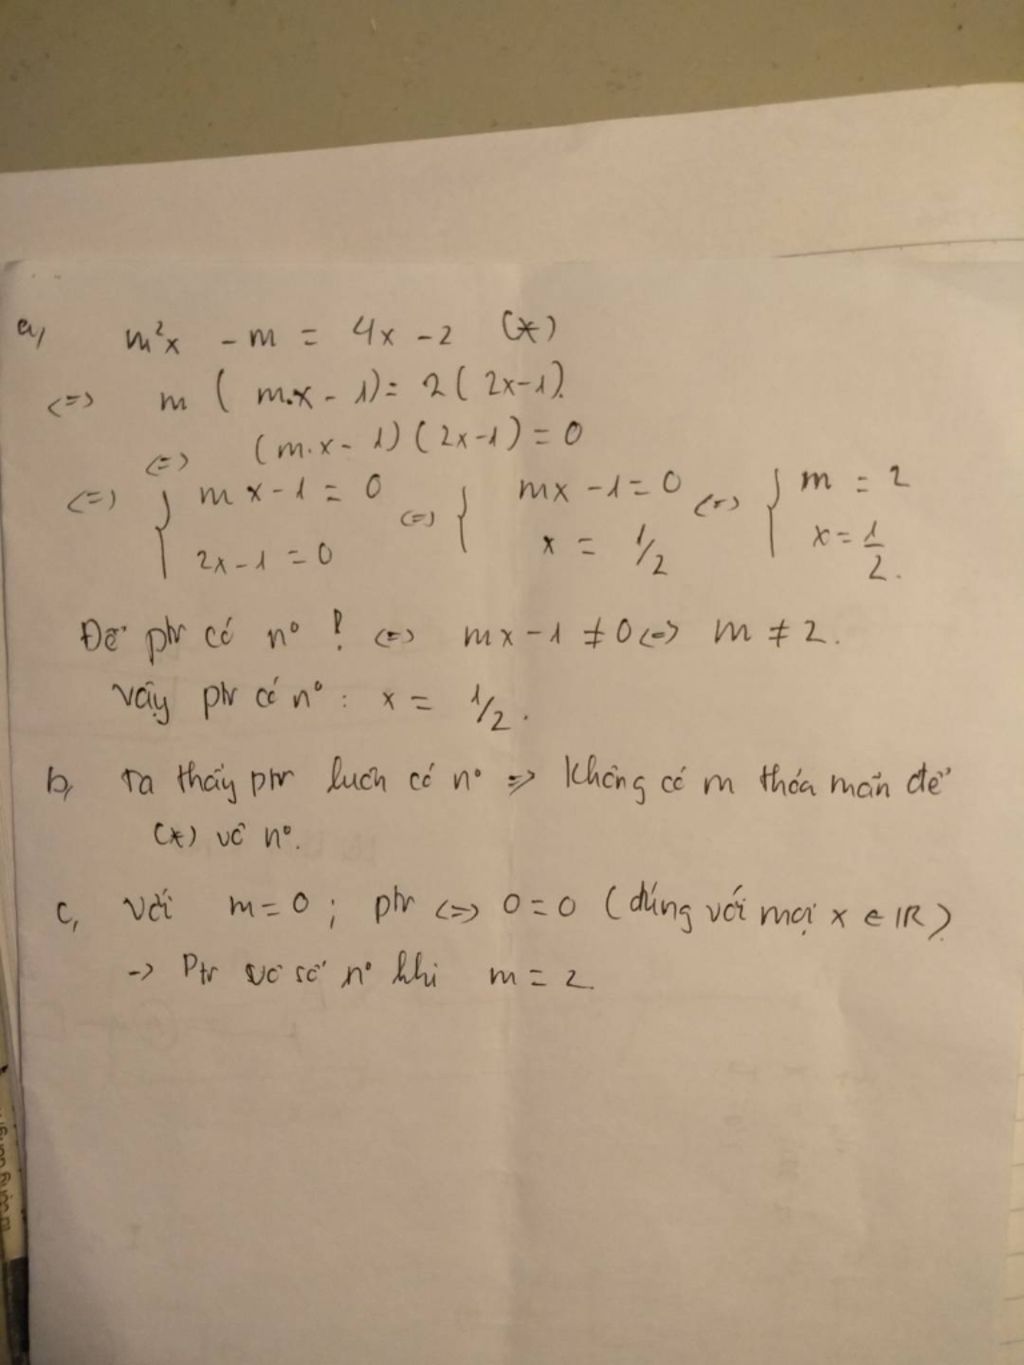 a, m²x - m = 4x - 2 (*)
<=> m ( m.x - 1) = 2 ( 2x-1).
<=> (m.x - 1) ( 2x-1) = 0
<=> { mx-1 = 0 <=> { mx -1 = 0 <=> { m = 2
2x-1 = 0 x = 1/2 x = 1/2.
Để ptr có nº ! <=> mx - 1 ≠ 0 <=> m ≠ 2.
Vậy ptr có nº : x = 1/2.
b, Ta thấy ptr luôn có nº => Không có m thỏa mãn để
(*) vô nº.
c, Với m = 0 ; ptr <=> 0 = 0 ( đúng với mọi x ∈ IR )
-> Ptr vô số nº khi m = 2.